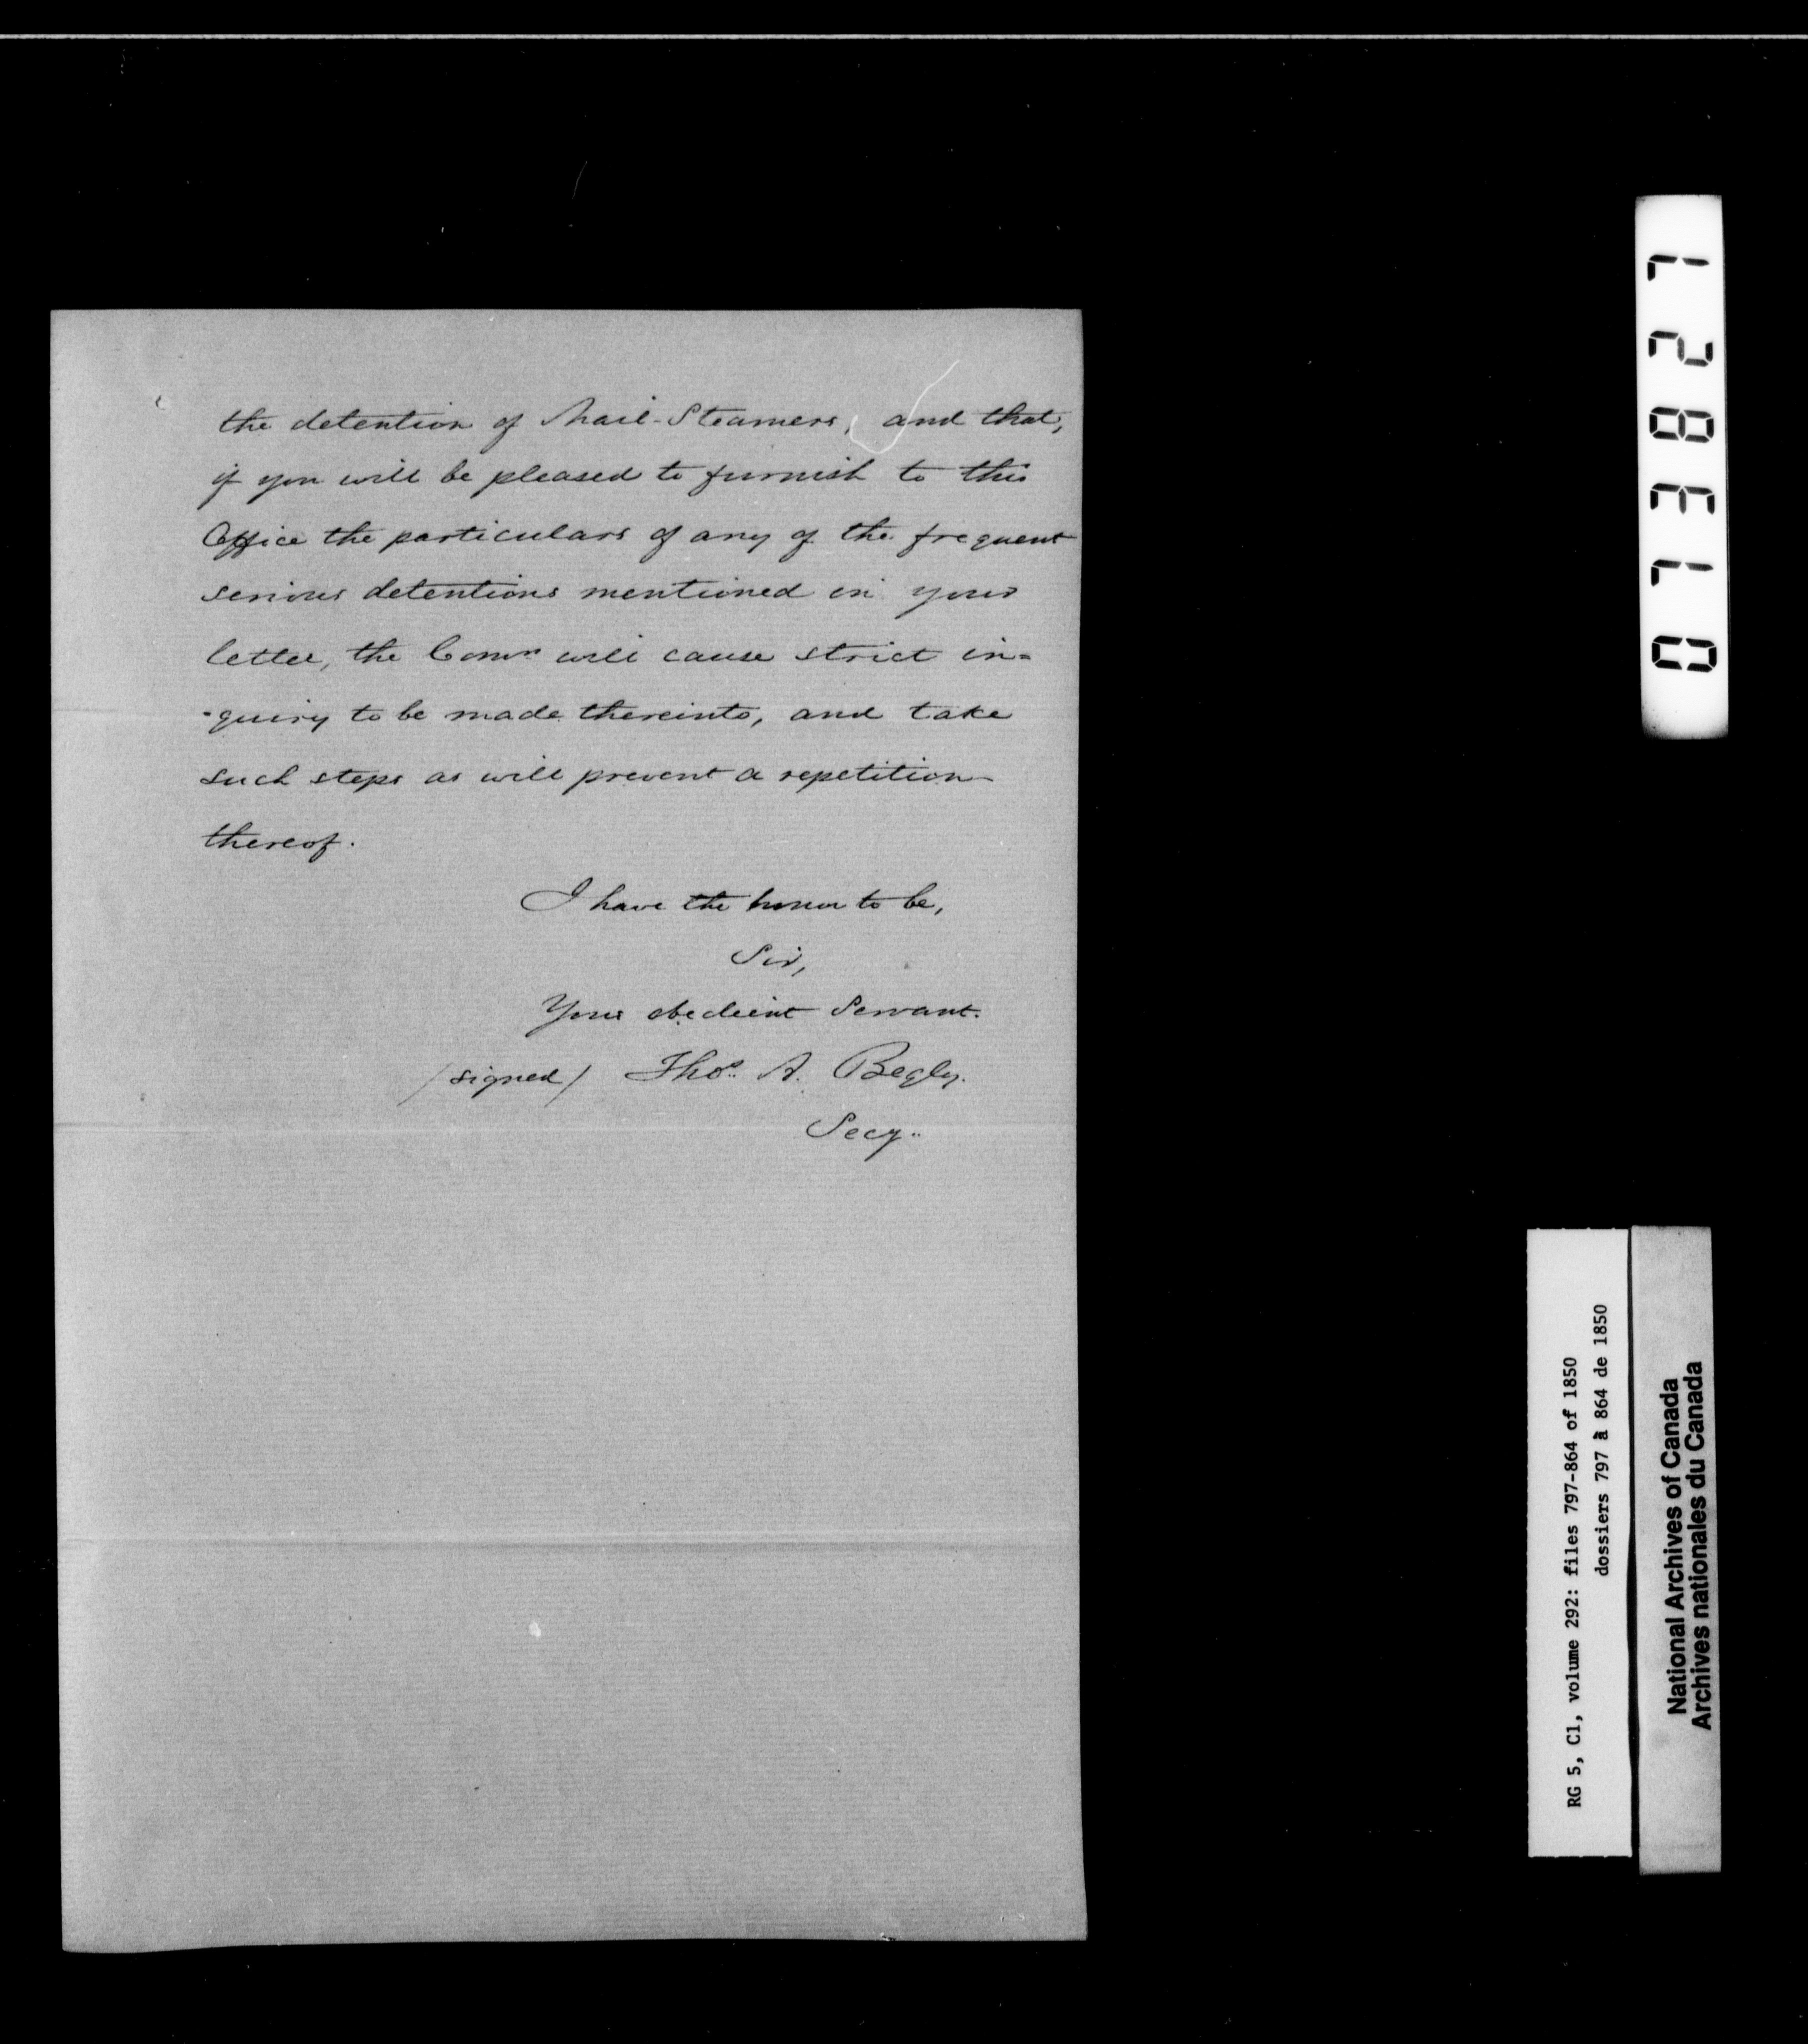 the detention of Mail-Steamers, and that,
if you will be pleased to furnish to this
Office the particulars of any of the frequent
serious detentions mentioned in your
letter, the Comrs will cause strict in=
-quiry to be made thereinto, and take
such steps as will prevent a repetition
thereof.
I have the honor to be,
Sir,
Your obedient Servant.
/signed/ Thos. A. Begly.
Secy..
0713871
RG 5, C1, volume 292: files 797-864 of 1850
dossiers 797 à 864 de 1850
National Archives of Canada
Archives nationales du Canada